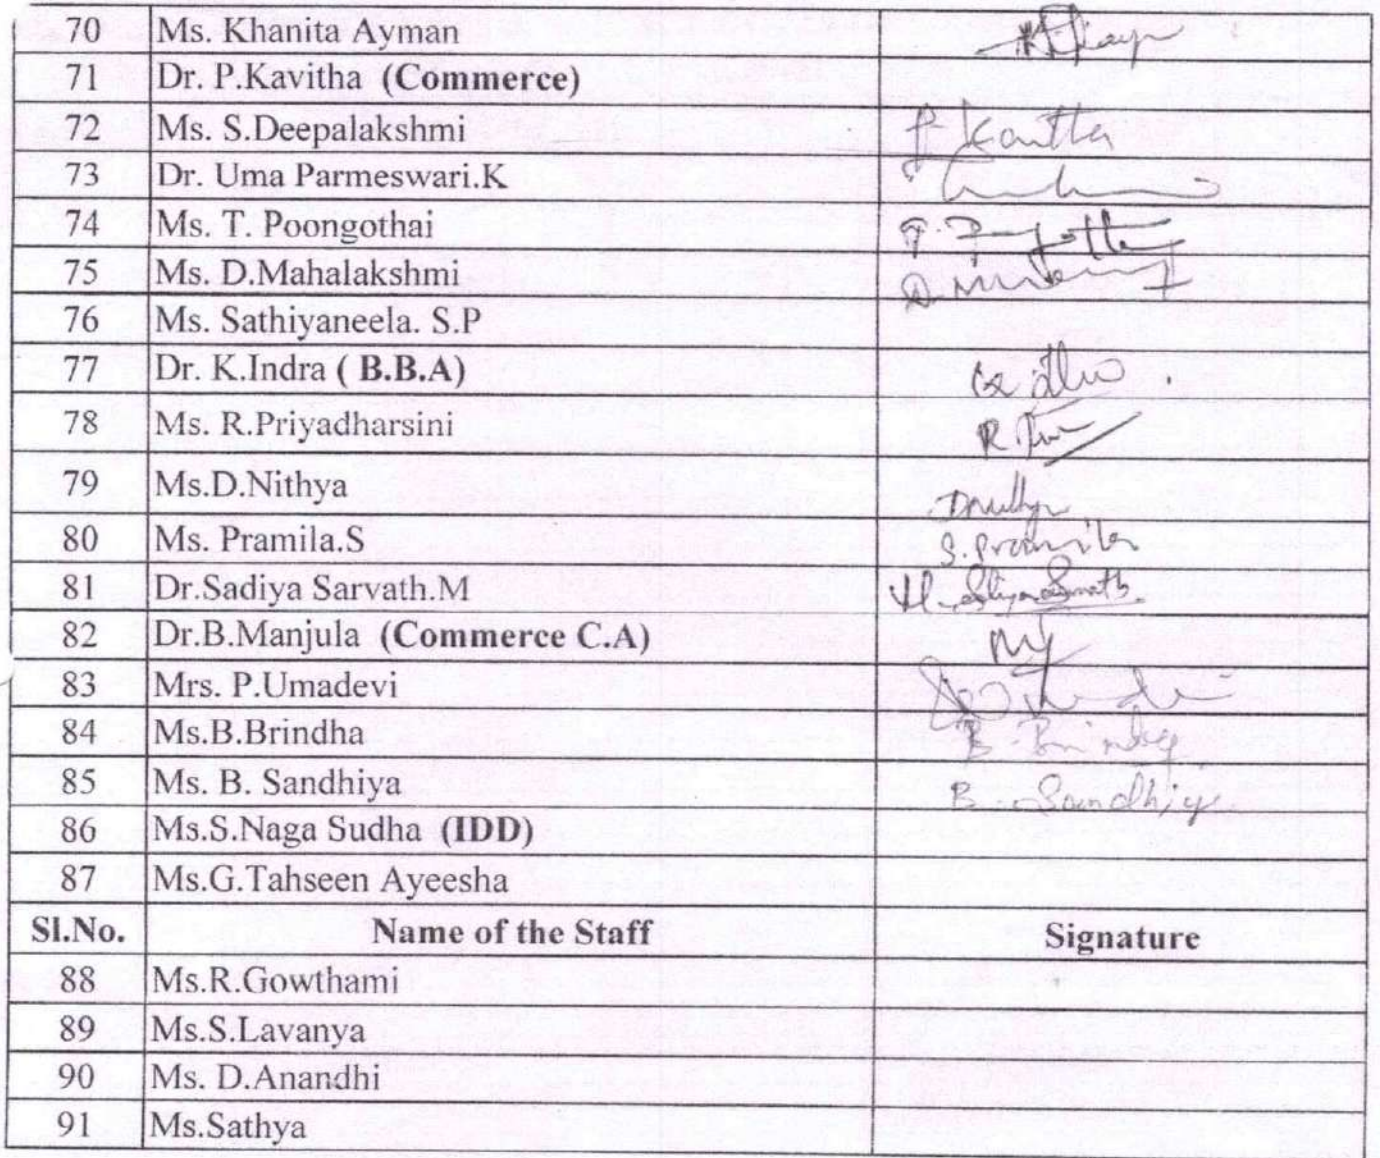 70 Ms. Khanita Ayman
71 Dr. P.Kavitha (Commerce)
72 Ms. S.Deepalakshmi P. Kavitha
73 Dr. Uma Parmeswari.K
74 Ms. T. Poongothai
75 Ms. D.Mahalakshmi
76 Ms. Sathiyaneela. S.P
77 Dr. K.Indra ( B.B.A)
78 Ms. R.Priyadharsini
79 Ms.D.Nithya
80 Ms. Pramila.S S. Pramila
81 Dr.Sadiya Sarvath.M
82 Dr.B.Manjula (Commerce C.A)
83 Mrs. P.Umadevi
84 Ms.B.Brindha B. Brindha
85 Ms. B. Sandhiya B. Sandhiya
86 Ms.S.Naga Sudha (IDD)
87 Ms.G.Tahseen Ayeesha
Sl.No. Name of the Staff Signature
88 Ms.R.Gowthami
89 Ms.S.Lavanya
90 Ms. D.Anandhi
91 Ms.Sathya